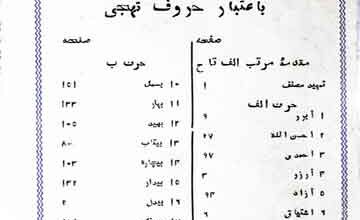 باعتبار حروف تهجی
صفحه
مقدمهٔ مرتب الف تا ح
تمہید مصنف ۱
حرف الف
۱ آبرو ۹
۲ احسن اللہ ۲۷
۳ احمدی ۹۷
۴ آرزو ۳
۵ آزاد ۹۳
۶ اشتیاق ۶
صفحه
حرف ب
۱۰ بسمل ۱۵۱
۱۱ بہار ۱۳۳
۱۲ بهید ۱۰۵
۱۳ بیتاب ۸۰
۱۴ بیچارہ ۱۰۳
۱۵ بیدار ۱۳۲
۱۶ بیدل ۲